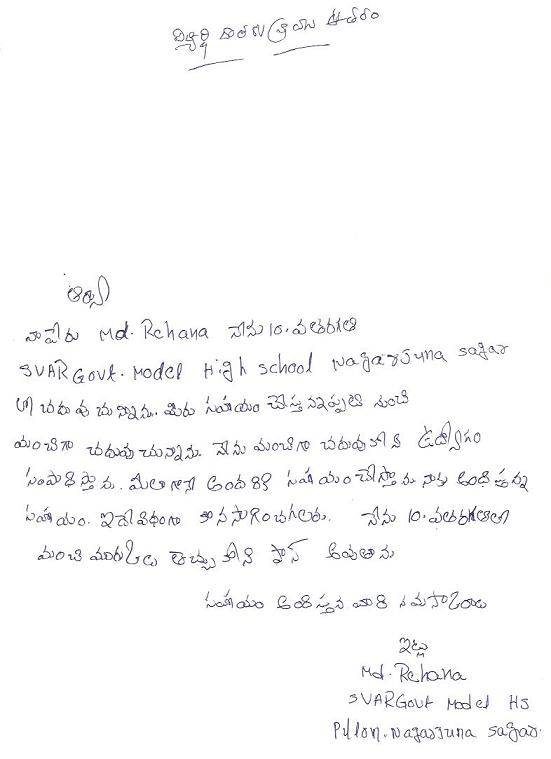 విద్యార్థి అభిప్రాయ ఉత్తరం
ఆర్యా
నా పేరు Md. Rehana నేను 10.వతరగతి
SVAR Govt. Model High school Nagarjuna sagar
లో చదువుచున్నాను. మీరు సహాయం చేస్తున్నప్పటి నుంచి
మంచిగా చదువుచున్నాను. నేను మంచిగా చదువుకొని ఉద్యోగం
సంపాదిస్తాను. మీలాగానే అందరికి సహాయంచేస్తాను నాకు అందిస్తున్న
సహాయం. ఇదేవిధంగా కొనసాగించగలరు. నేను 10.వతరగతిలో
మంచి మార్కులు తెచ్చుకొని ఫాస్ అవుతాను
సహాయం అందిస్తున వారికి నమస్కారాలు
ఇట్లు
Md. Rehana
SVARGovt Model HS
Pillon. Nagarjuna sagar.